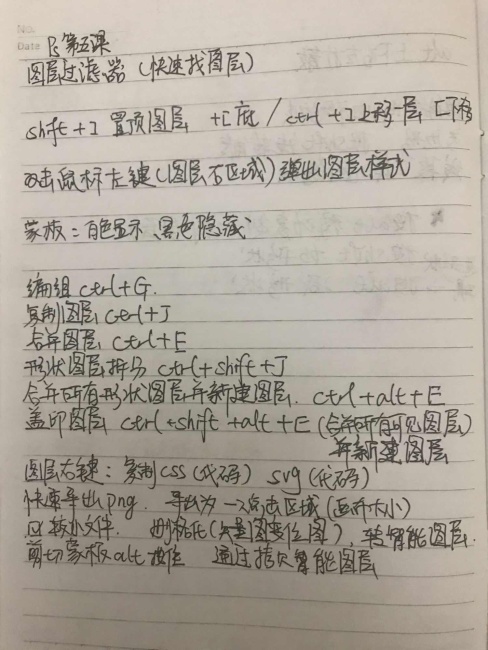 No.
Date Ps第五课
图层过滤器（快速找图层）
shift+] 置顶图层 +[底 / ctrl+]上移一层 [下移
双击鼠标左键(图层右区域)弹出图层样式
蒙板：白色显示 黑色隐藏
编组 ctrl+G.
复制图层 ctrl+J
合并图层 ctrl+E
形状图层拆分 ctrl+shift+J
合并所有形状图层并新建图层. ctrl+alt+E
盖印图层 ctrl+shift+alt+E (合并所有可见图层)
并新建图层
图层右键：复制css(代码) svg(代码)
快速导出png. 导出为→点击区域(画布大小)
文件. 删格化(矢量图变位图), 转智能图层.
剪切蒙板alt按住 通过拷贝智能图层